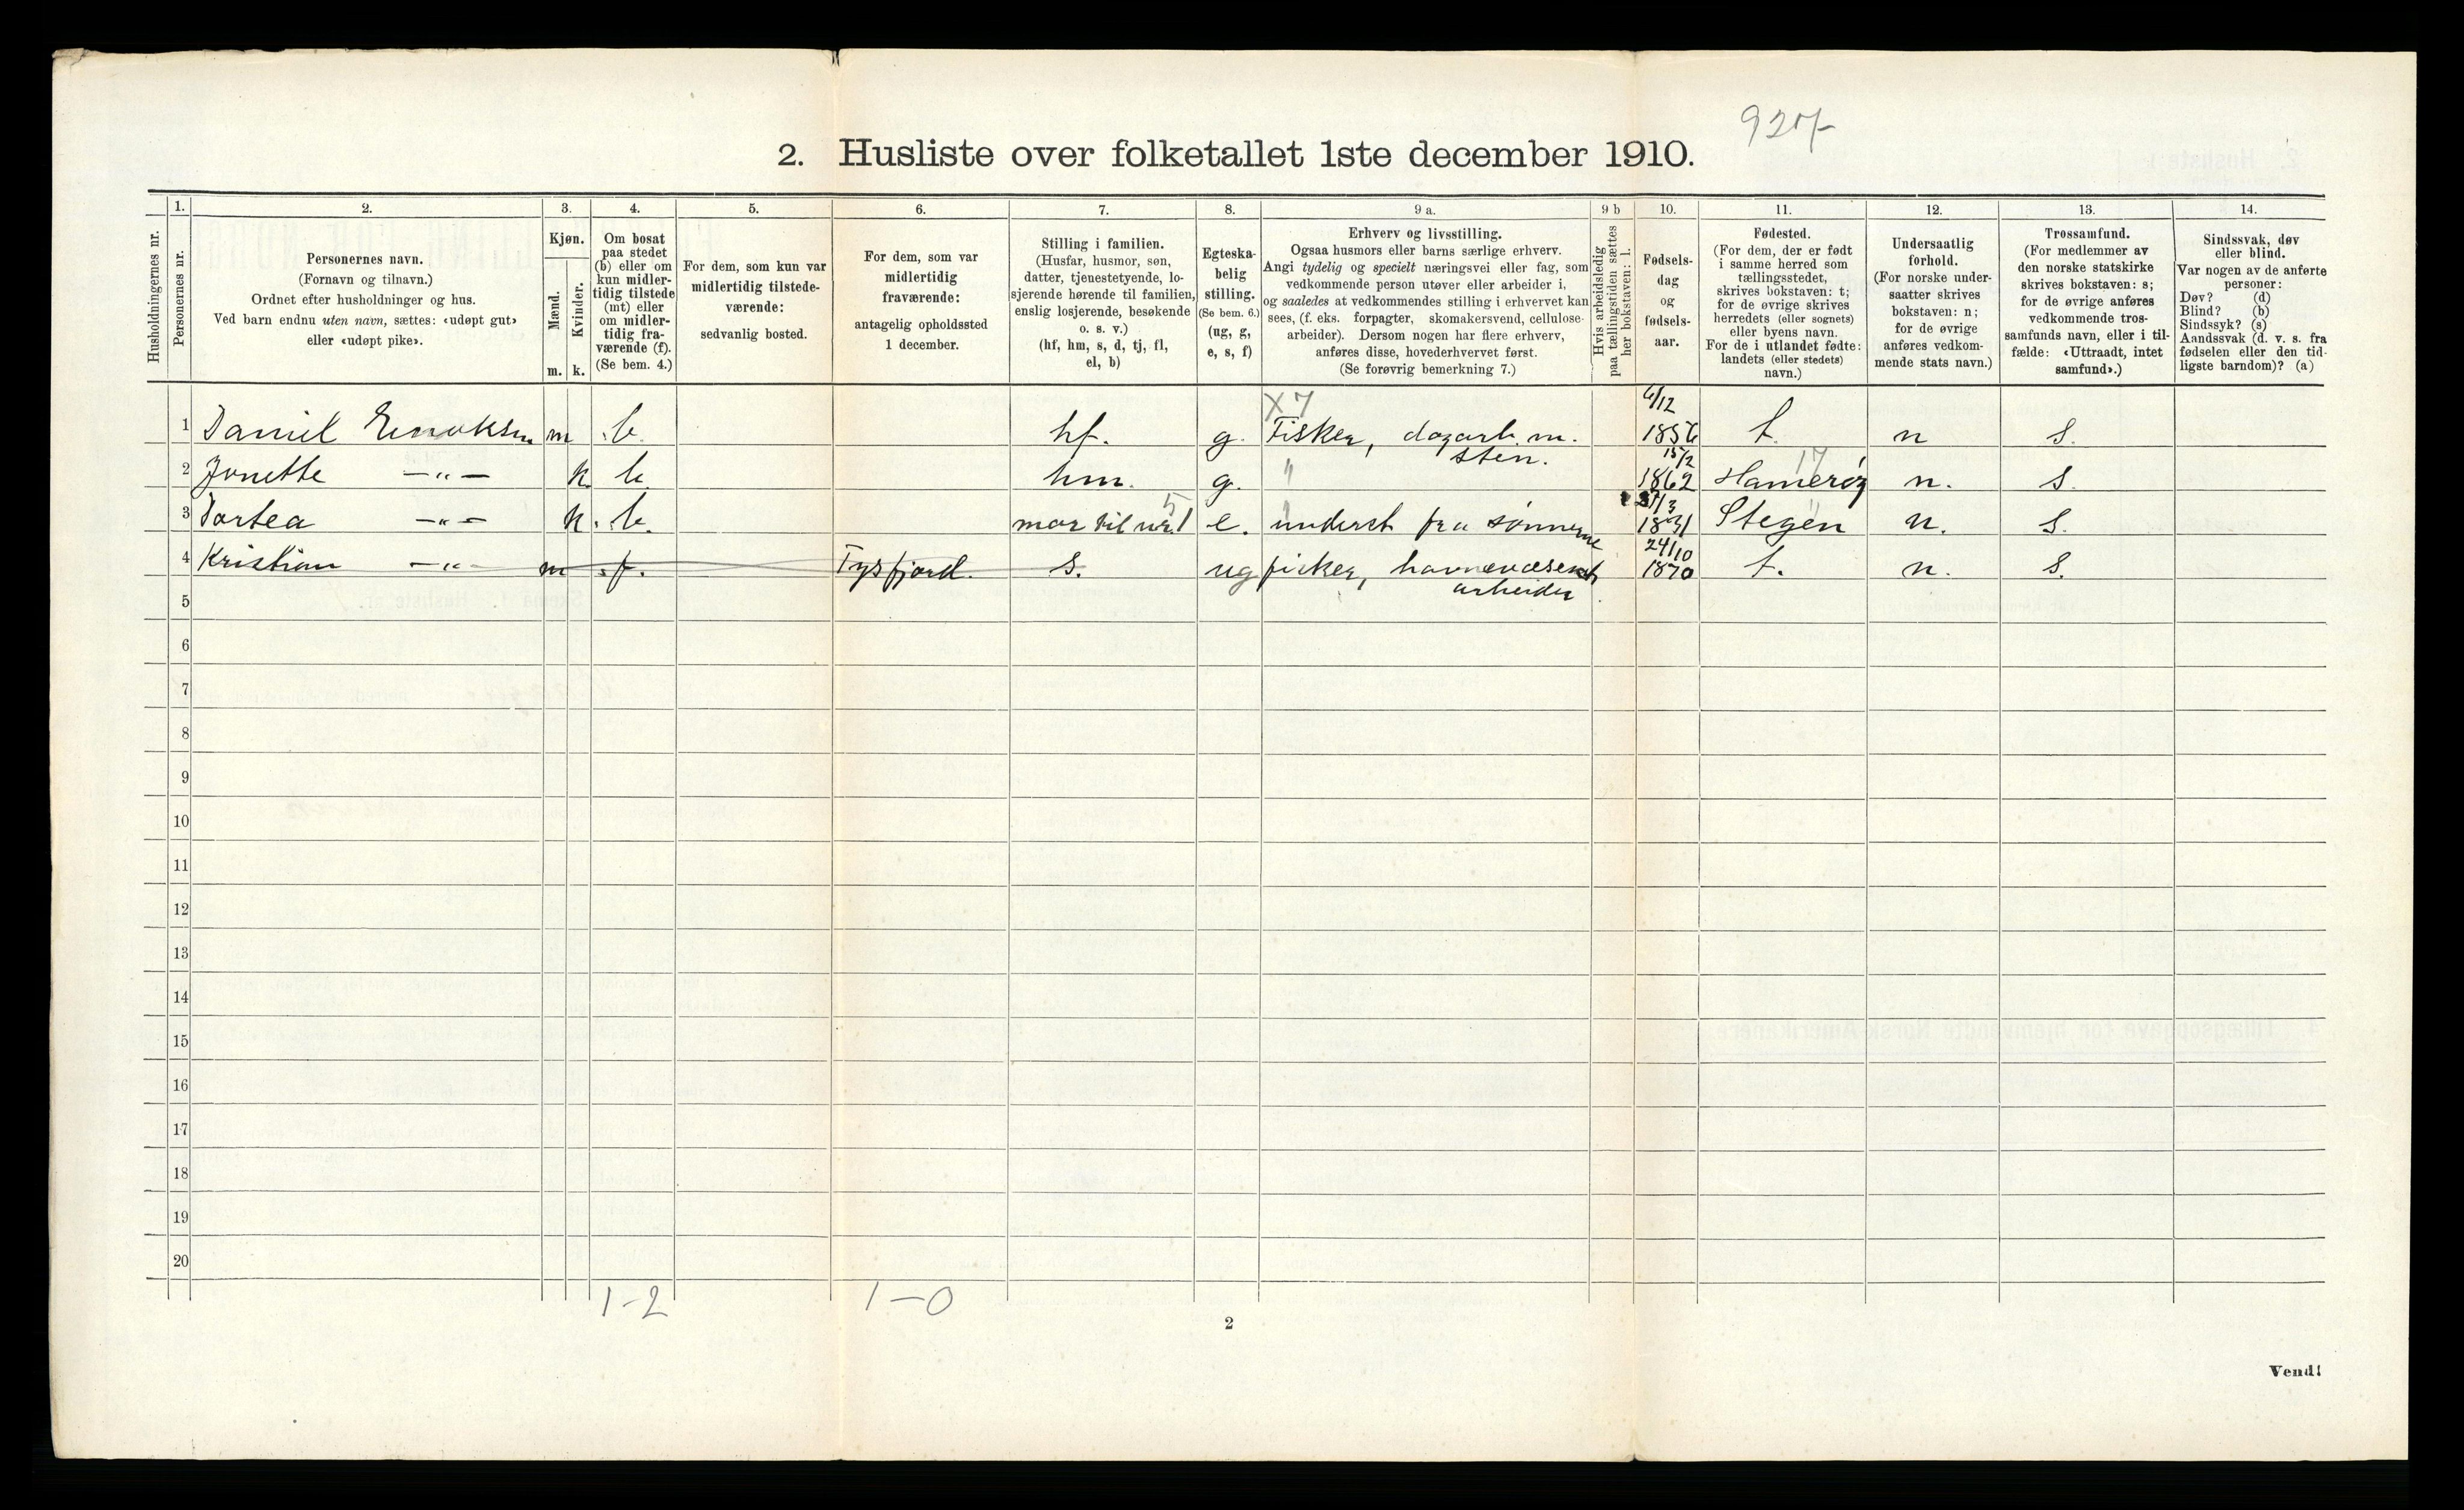 927
2. Husliste over folketallet 1ste december 1910.
Husholdningernes nr.
1.
Personernes nr.
2.
Personernes navn.
(Fornavn og tilnavn.)
Ordnet efter husholdninger og hus.
Ved barn endnu uten navn, sættes: «udøpt gut»
eller «udøpt pike».
3.
Kjøn.
Mænd.
Kvinder.
m. k.
4.
Om bosat
paa stedet
(b) eller om
kun midler-
tidig tilstede
(mt) eller
om midler-
tidig fra-
værende (f).
(Se bem. 4.)
5.
For dem, som kun var
midlertidig tilstede-
værende:
sedvanlig bosted.
6.
For dem, som var
midlertidig
fraværende:
antagelig opholdssted
1 december.
7.
Stilling i familien.
(Husfar, husmor, søn,
datter, tjenestetyende, lo-
sjerende hørende til familien,
enslig losjerende, besøkende
o. s. v.)
(hf, hm, s, d, tj, fl,
el, b)
8.
Egteska-
belig
stilling.
(Se bem. 6.)
(ug, g,
e, s, f)
9 a.
Erhverv og livsstilling.
Ogsaa husmors eller barns særlige erhverv.
Angi tydelig og specielt næringsvei eller fag, som
vedkommende person utøver eller arbeider i,
og saaledes at vedkommendes stilling i erhvervet kan
sees, (f. eks. forpagter, skomakersvend, cellulose-
arbeider). Dersom nogen har flere erhverv,
anføres disse, hovederhvervet først.
(Se forøvrig bemerkning 7.)
9 b
Hvis arbeidsledig
paa tællingstiden sættes
her bokstaven: l.
10.
Fødsels-
dag
og
fødsels-
aar.
11.
Fødested.
(For dem, der er født
i samme herred som
tællingsstedet,
skrives bokstaven: t;
for de øvrige skrives
herredets (eller sognets)
eller byens navn.
For de i utlandet fødte:
landets (eller stedets)
navn.)
12.
Undersaatlig
forhold.
(For norske under-
saatter skrives
bokstaven: n;
for de øvrige
anføres vedkom-
mende stats navn.)
13.
Trossamfund.
(For medlemmer av
den norske statskirke
skrives bokstaven: s;
for de øvrige anføres
vedkommende tros-
samfunds navn, eller i til-
fælde: «Uttraadt, intet
samfund».)
14.
Sindssvak, døv
eller blind.
Var nogen av de anførte
personer:
Døv? (d)
Blind? (b)
Sindssyk? (s)
Aandssvak (d. v. s. fra
fødselen eller den tid-
ligste barndom)? (a)
X7 6/12
1 Daniel Enoksen m b. hf. g. Fisker, dagarb. m. 1856 t. n s.
sten. 15/2 17
2 Jonette —„— k. b. hm. g. " 1862 Hamerøy n. s.
5 31/3
3 Dortea —„— k. b. mor til nr. 1 e. underst fra sønnerne 1831 Stegen n. s.
24/10
4 Kristian —„— m f. Tysfjord. s. ug fisker, havnevæsenet 1870 t. n. s.
arbeider
5
6
7
8
9
10
11
12
13
14
15
16
17
18
19
20
1-2 1-0
2
Vend!